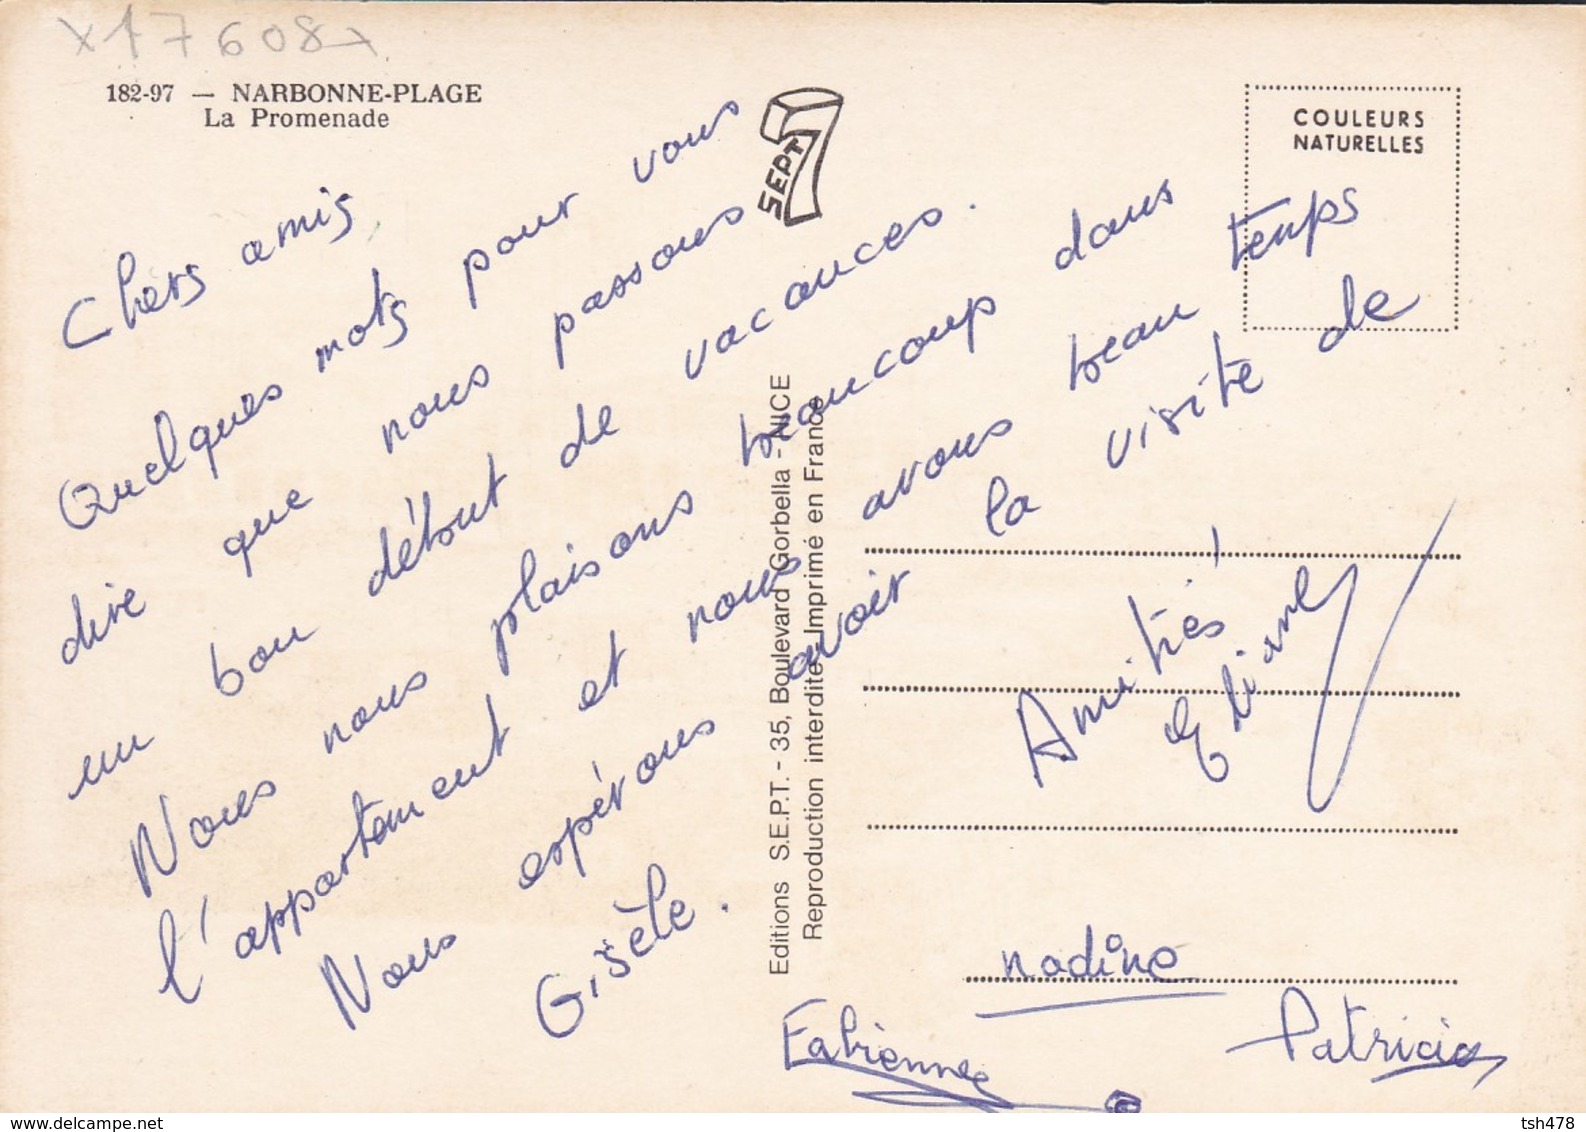 x17608x
182-97 — NARBONNE-PLAGE
La Promenade
SEPT 7
COULEURS
NATURELLES
Chers amis
Quelques mots pour vous
dire que nous passons
un bon début de vacances.
Nous nous plaisons beaucoup dans
l'appartement et nous avons beau temps
Nous espérons avoir la visite de
Gisèle.
Amitiés
Eliane
Editions S.E.P.T. - 35, Boulevard Gorbella - NICE
Reproduction interdite Imprimé en France
nadine
Fabienne
Patricia
www.delcampe.net
tsh478